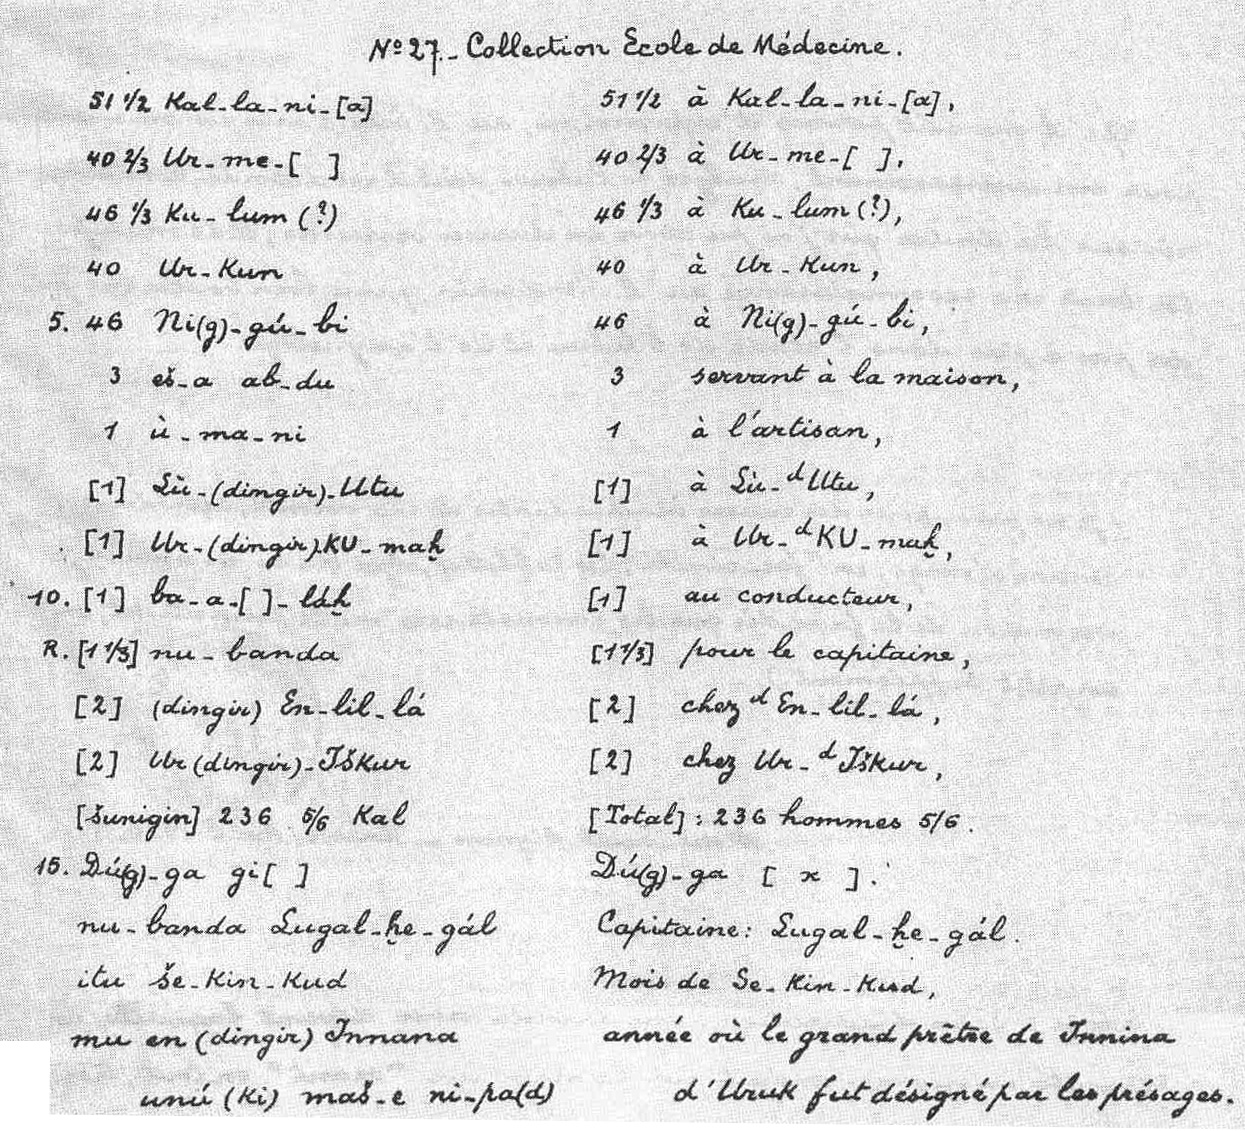 Nº 27. - Collection Ecole de Médecine.
51 1/2 Kal-la-ni-[a] 51 1/2 à Kal-la-ni-[a],
40 2/3 Ur-me-[ ] 40 2/3 à Ur-me-[ ],
46 1/3 Ku-lum (?) 46 1/3 à Ku-lum (?),
40 Ur-Kun 40 à Ur-Kun,
5. 46 Ni(g)-gú-bi 46 à Ni(g)-gú-bi,
3 eš-a ab-du 3 servant à la maison,
1 ù-ma-ni 1 à l'artisan,
[1] Lù-(dingir)-Utu [1] à Lù-ᵈUtu,
[1] Ur-(dingir)-KU-maḫ [1] à Ur-ᵈKU-maḫ,
10. [1] ba-a-[ ]-láḫ [1] au conducteur,
R. [1 1/3] nu-banda [1 1/3] pour le capitaine,
[2] (dingir) En-lil-lá [2] chez ᵈEn-lil-lá,
[2] Ur (dingir)-Iškur [2] chez Ur-ᵈIškur,
[šunigin] 236 5/6 Kal [Total] : 236 hommes 5/6.
15. Dú(g)-ga gi[ ] Dú(g)-ga [ x ].
nu-banda Lugal-ḫe-gál Capitaine: Lugal-ḫe-gál.
itu še-Kin-Kud Mois de Se-Kin-Kud,
mu en (dingir) Innana année où le grand prêtre de Innina
unú (Ki) maš-e ni-pa(d) d'Uruk fut désigné par les présages.